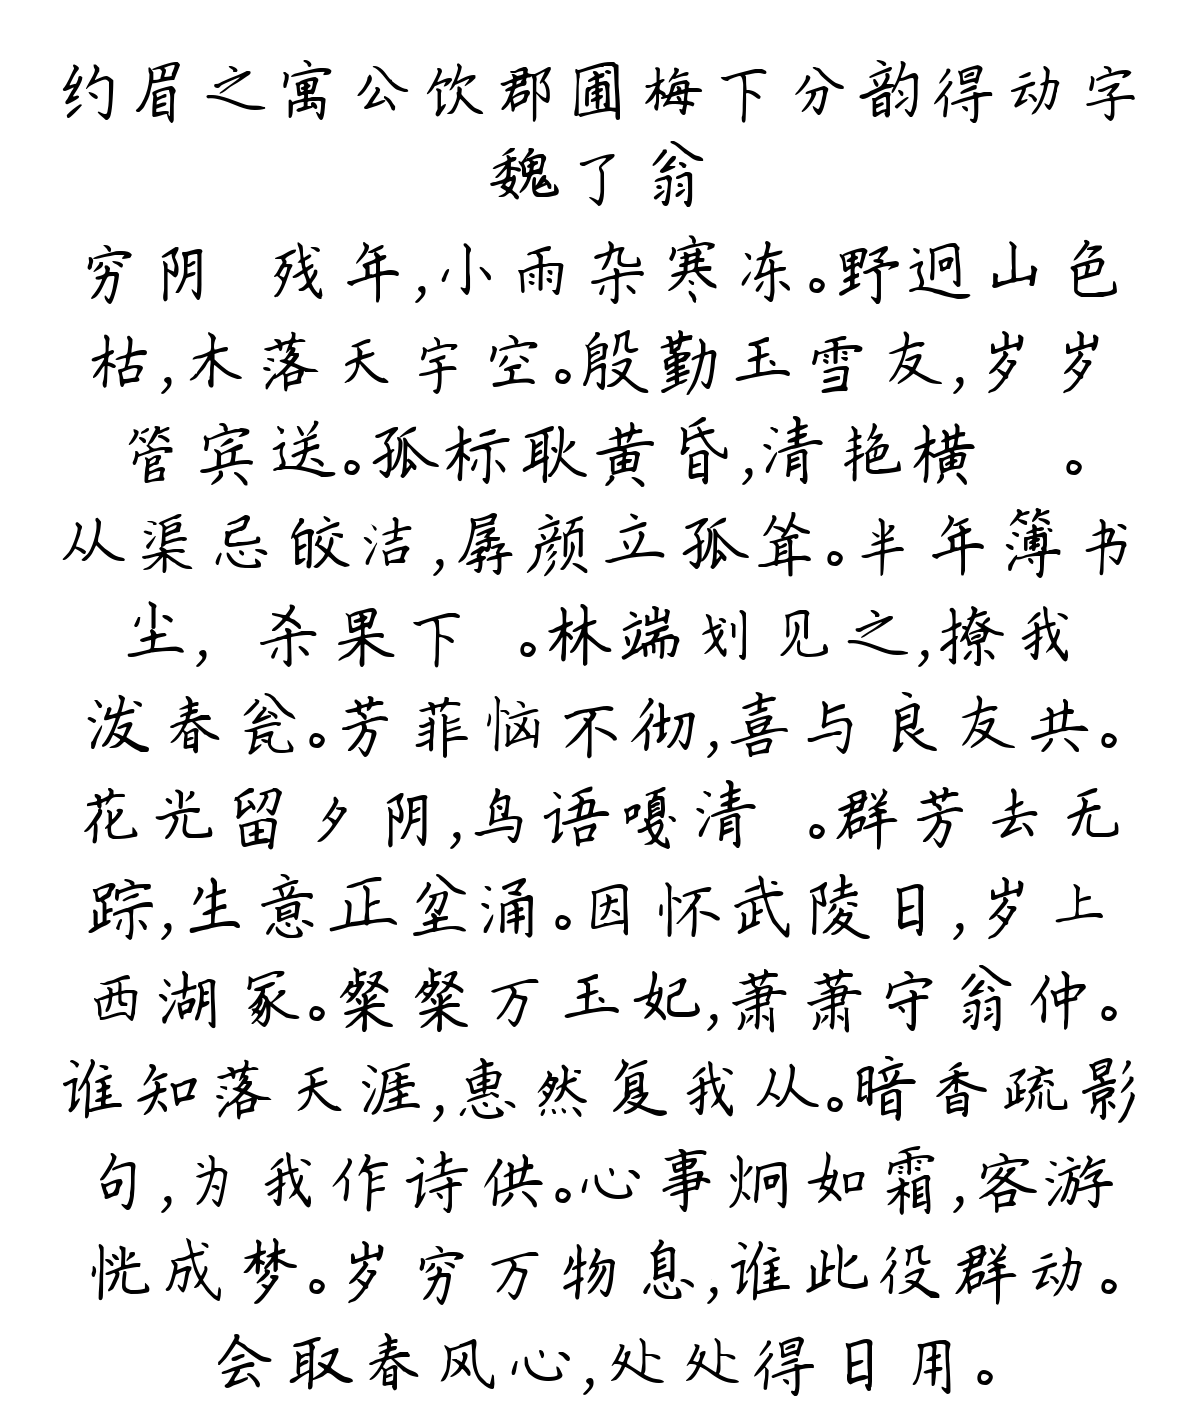 约眉之寓公饮郡圃梅下分韵得动字
魏了翁
穷阴 残年,小雨杂寒冻。野迥山色
枯,木落天宇空。殷勤玉雪友,岁岁
管宾送。孤标耿黄昏,清艳横 。
从渠忌皎洁,孱颜立孤耸。半年簿书
尘, 杀果下 。林端划见之,撩我
泼春瓮。芳菲恼不彻,喜与良友共。
花光留夕阴,鸟语嘎清 。群芳去无
踪,生意正坌涌。因怀武陵日,岁上
西湖冢。粲粲万玉妃,萧萧守翁仲。
谁知落天涯,惠然复我从。暗香疏影
句,为我作诗供。心事炯如霜,客游
恍成梦。岁穷万物息,谁此役群动。
会取春风心,处处得日用。